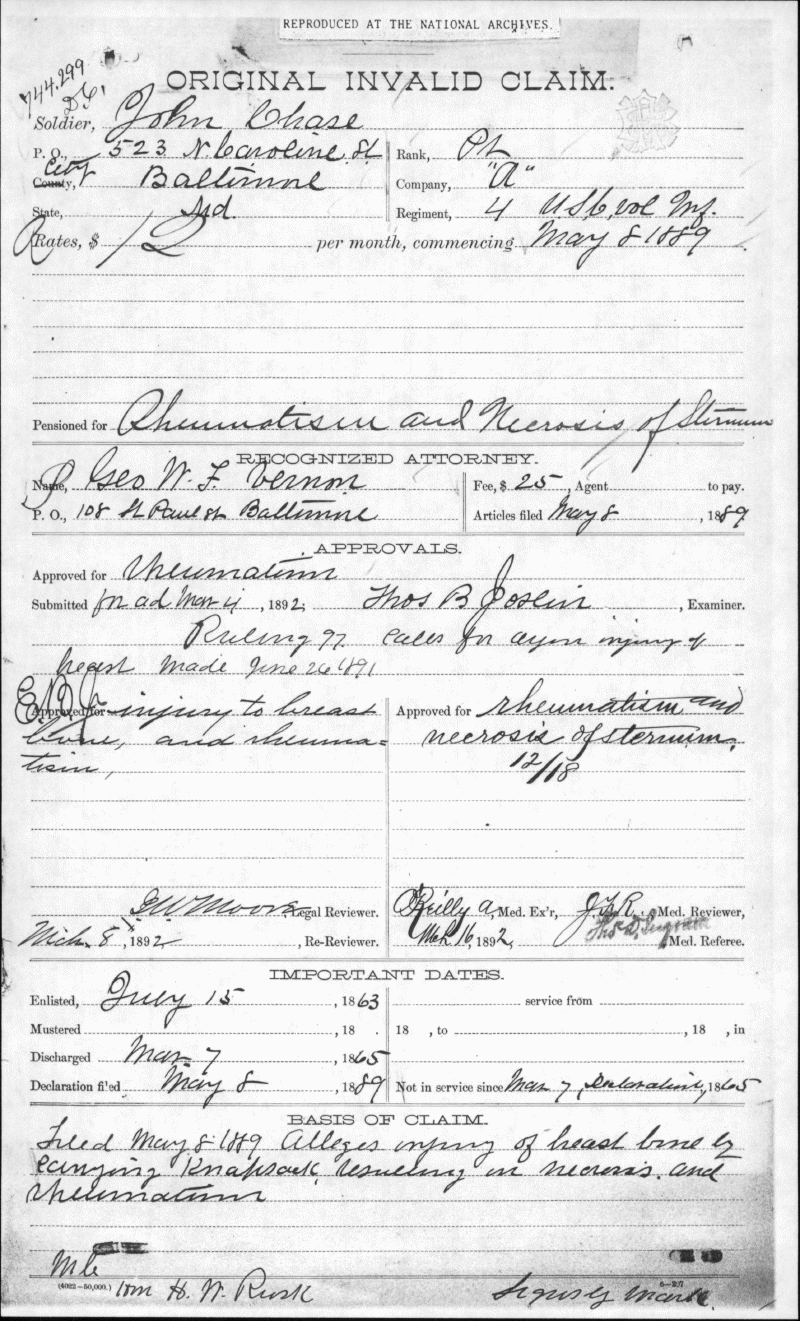 REPRODUCED AT THE NATIONAL ARCHIVES.
744.299
ORIGINAL INVALID CLAIM.
Soldier, John Chase
P. O., 523 N. Caroline St
Rank, Pt
City County, Baltimore
Company, "A"
State, Md.
Regiment, 4 U.S.C. Vol Inf.
Rates, $ 12 per month, commencing May 8 1889
Pensioned for Rheumatism and Necrosis of Sternum
RECOGNIZED ATTORNEY.
Name, Geo W. F. Vernon
Fee, $ 25, Agent to pay.
P. O., 108 St Paul st Baltimore
Articles filed May 8, 1889
APPROVALS.
Approved for rheumatism
Submitted for ad Mar 4, 1892; Thos B Joslin, Examiner.
Ruling 97 calls for injury of
breast made June 26 1891
Approved for injury to breast
bone, and rheuma=
tism,
Approved for rheumatism and
necrosis of sternum.
12/18
G W Moore Legal Reviewer.
Mch. 8, 1892, Re-Reviewer.
Reilly A, Med. Ex'r, Med. Reviewer,
Mch 16, 1892, Med. Referee.
IMPORTANT DATES.
Enlisted, July 15, 1863
service from
Mustered, 18 .
18 , to , 18 , in
Discharged Mar 7 1865
Declaration filed May 8 1889
Not in service since Mar 7, Declaration, 1865
BASIS OF CLAIM.
Filed May 8 1889 Alleges injury of breast bone by
carrying Knapsack, resulting in necrosis and
rheumatism
(4092—50,000.)
H. W. Rusk
6—227
Signs by mark.